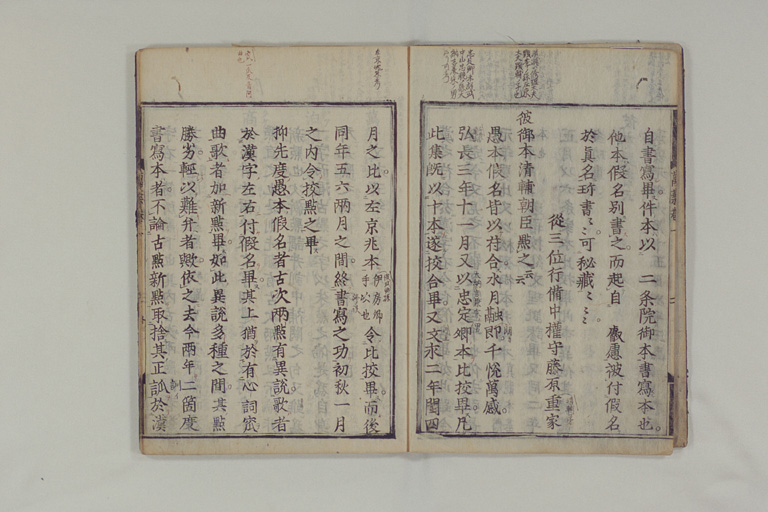 自書寫畢件本以 二条院御本書寫本也
他本假名别書之而起自 叡慮被付假名
於真名珎書〻可秘藏〻〻〻
從三位行備中權守藤原重家
彼御本清輔朝臣點之云云
愚本假名皆以符合水月融即千悦萬感
弘長三年十一月又以忠定卿本比挍畢凡
此集既以十本遂挍合畢又文永二年閏四
月之比以左京兆本 伊房卿手公也 令比挍畢而後
同年五六兩月之間終書寫之功初秋一月
之内令挍點之畢
抑先度愚本假名者古次兩點有異説歌者
於漢字左右付假名畢其上猶於有心詞宻
曲歌者加新點畢如此異説多種之間其點
勝劣輙以難弁者歟依之去今兩年二箇度
書寫本者不論古點新點取捨其正訓於漢